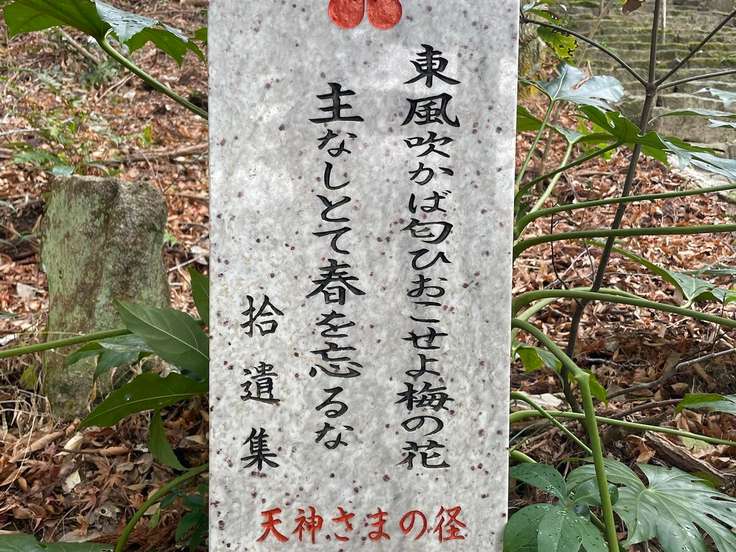 東風吹かば匂ひおこせよ梅の花
主なしとて春を忘るな
拾遺集
天神さまの径